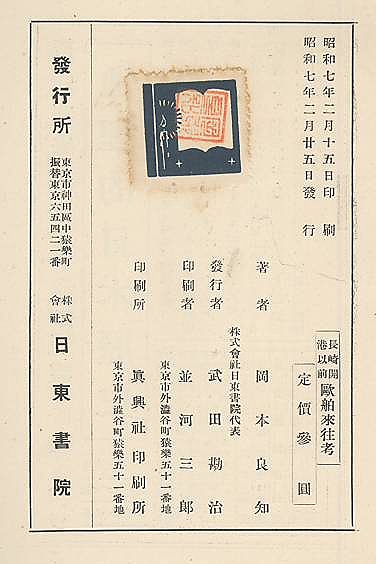 昭和七年二月十五日印刷
昭和七年二月廿五日發行
長崎開港以前 歐舶來往考
定價參圓
著者 岡本良知
株式會社日東書院代表
發行者 武田勘治
印刷者 並河三郎
東京市外澁谷町猿樂五十一番地
印刷所 眞興社印刷所
東京市外澁谷町猿樂五十一番地
發行所
東京市神田區中猿樂町
振替東京六五四二一番
株式會社 日東書院